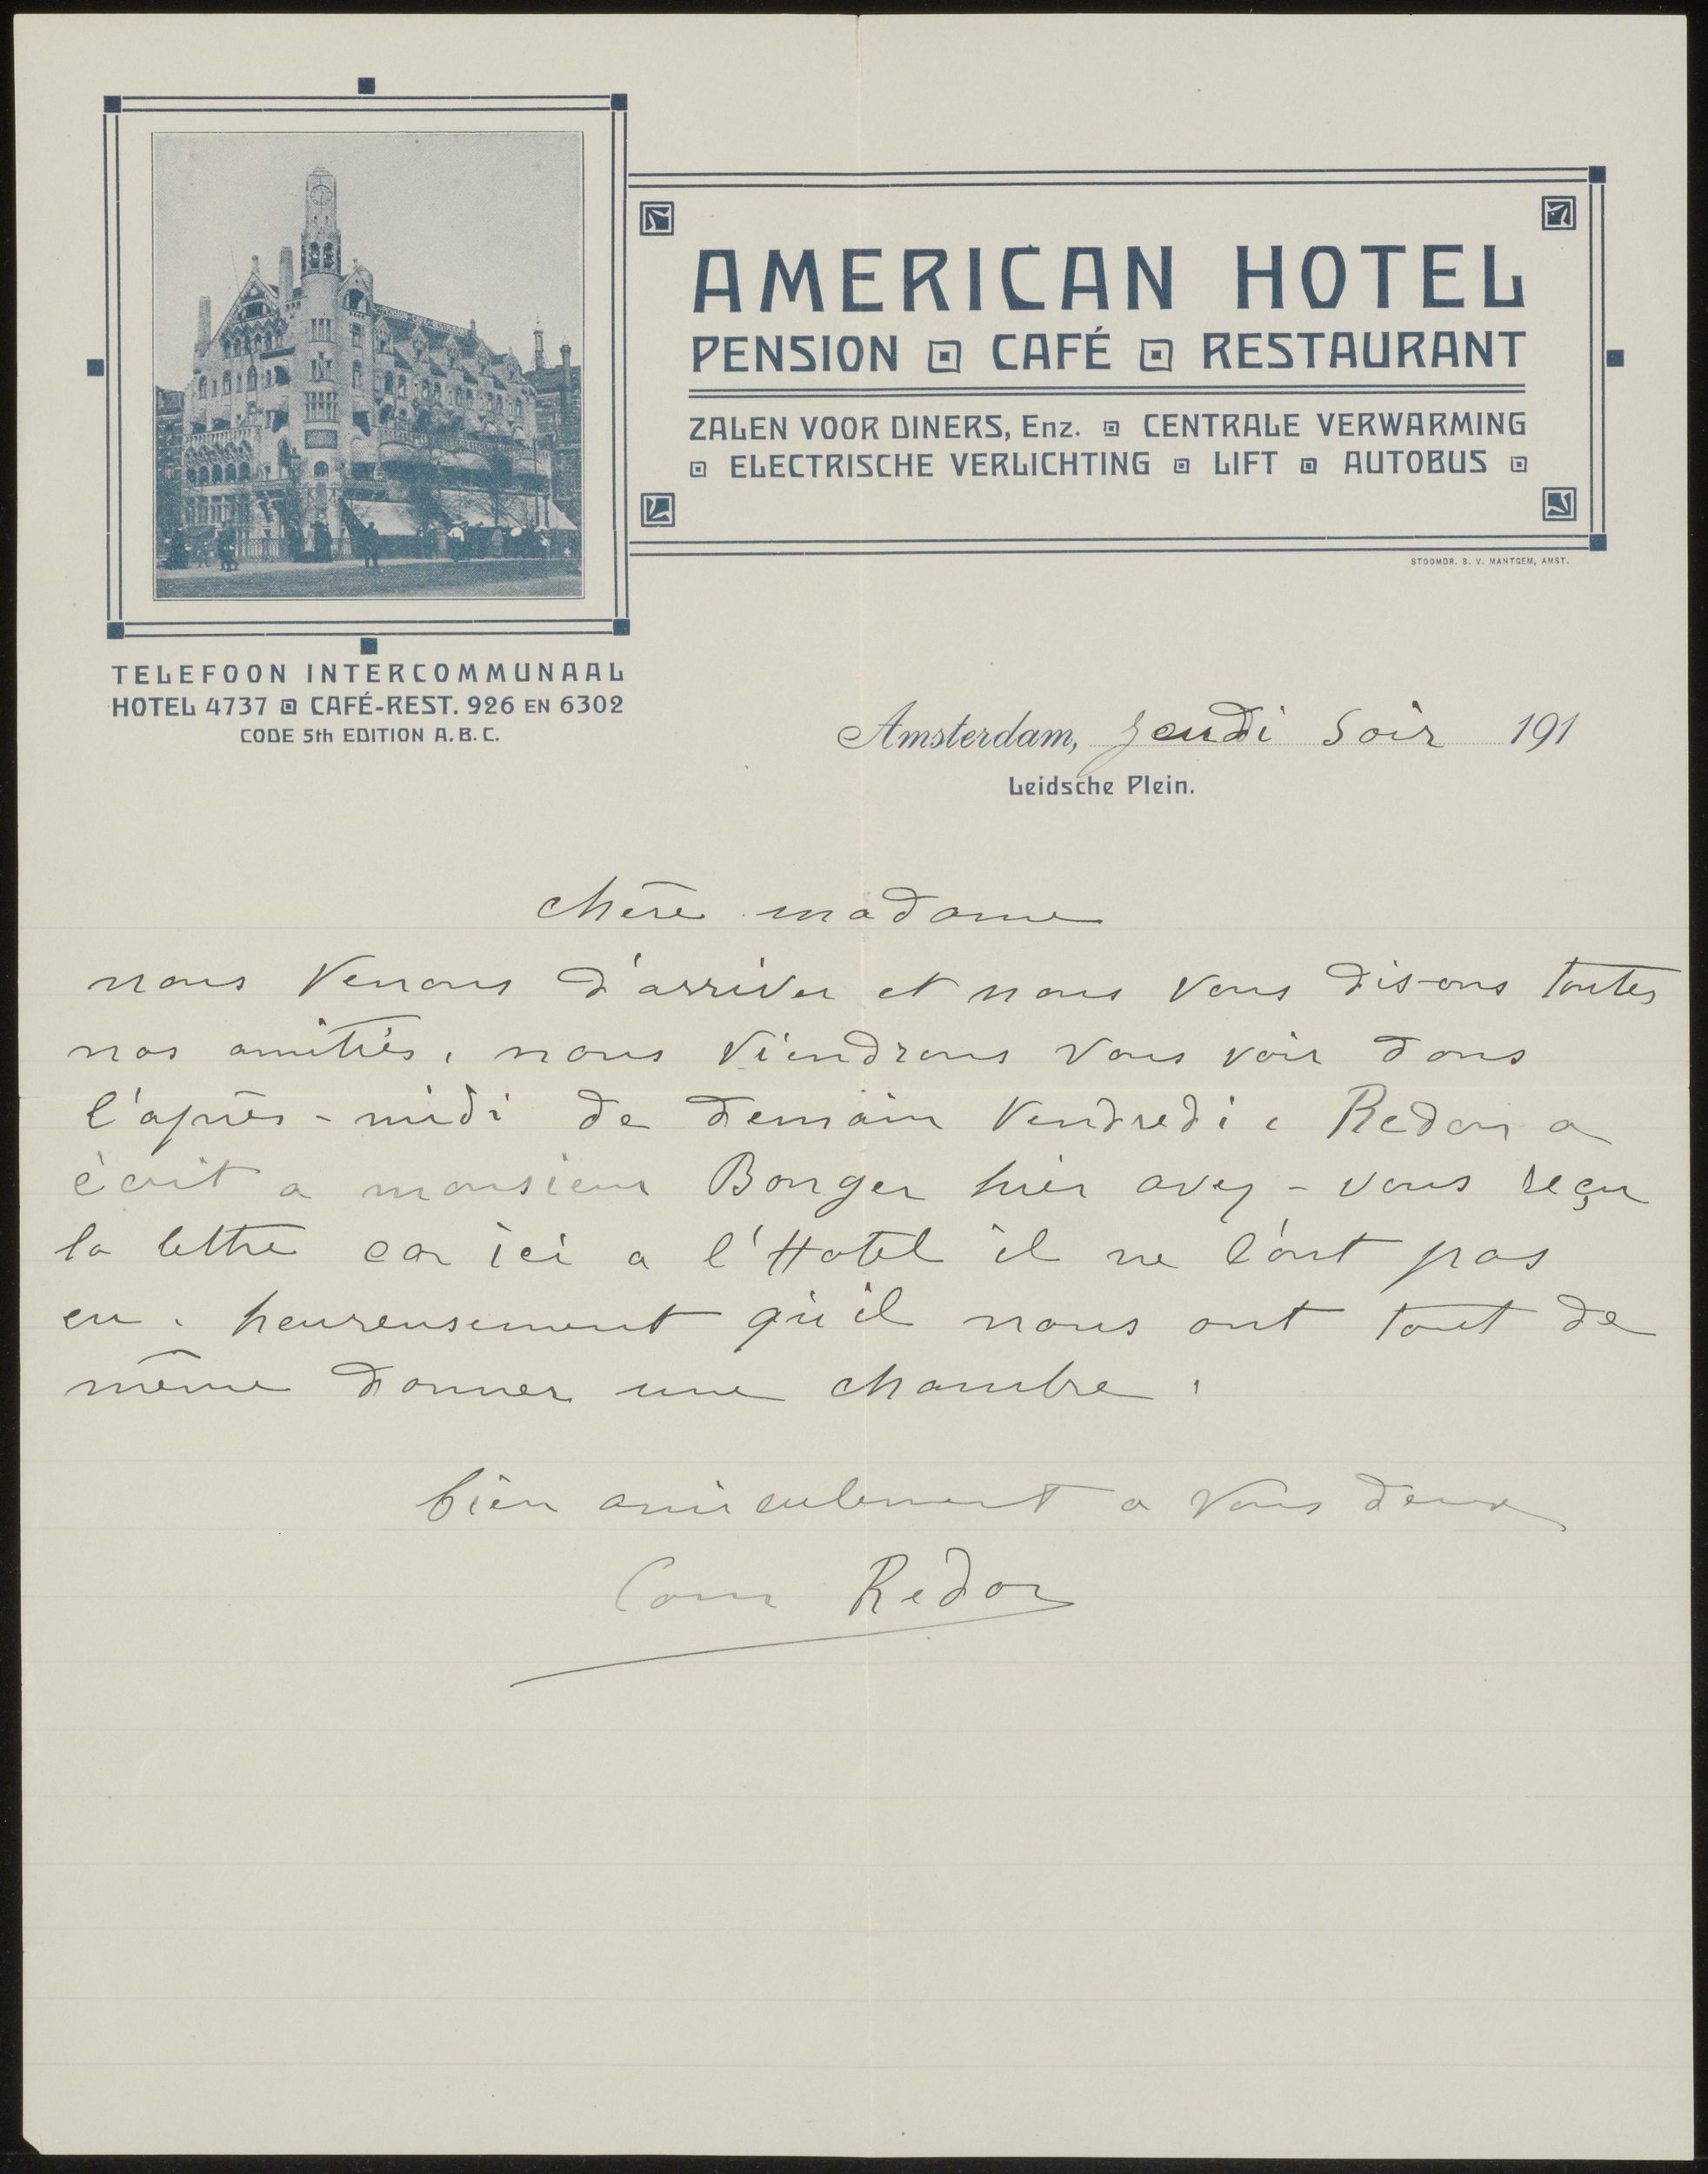 AMERICAN HOTEL
PENSION CAFÉ RESTAURANT
ZALEN VOOR DINERS, Enz. CENTRALE VERWARMING
ELECTRISCHE VERLICHTING LIFT AUTOBUS
STOOMDR. B. V. MANTGEM, AMST.
TELEFOON INTERCOMMUNAAL
HOTEL 4737 CAFÉ-REST. 926 EN 6302
CODE 5th EDITION A.B.C.
Amsterdam, Jeudi Soir 191
Leidsche Plein.
chère madame
nous venons d'arriver et nous vous disons toutes
nos amitiés. nous viendrons vous voir dans
l'après-midi de demain vendredi. Redon a
écrit a monsieur Bonger hier avez-vous reçu
la lettre car ici a l'Hotel il ne l'ont pas
eu. heureusement qu'il nous ont tout de
même donner une chambre.
bien amicalement a vous deux
Redon